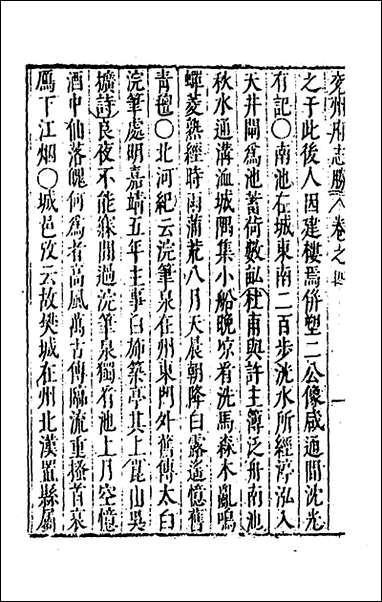 兖州府志勝 卷之四
之于此後人因建樓焉併塑二公像咸通間沈光
有記○南池在城東南二百步洸水所經渟泓入
天井閘爲池蓄荷數畝杜甫與許主簿泛舟南池
秋水通溝洫城隅集小船晚凉看洗馬森木亂鳴
蟬菱熟經時雨蒲荒八月天晨朝降白露遥憶舊
青氊○北河紀云浣筆泉在州東門外舊傳太白
浣筆處明嘉靖五年主事白旆築亭其上崑山吳
擴詩良夜不能寐閒過浣筆泉獨看池上月空憶
酒中仙落魄何爲者高風萬古傳臨流重搔首哀
鴈下江烟○城邑攷云故樊城在州北漢置縣屬